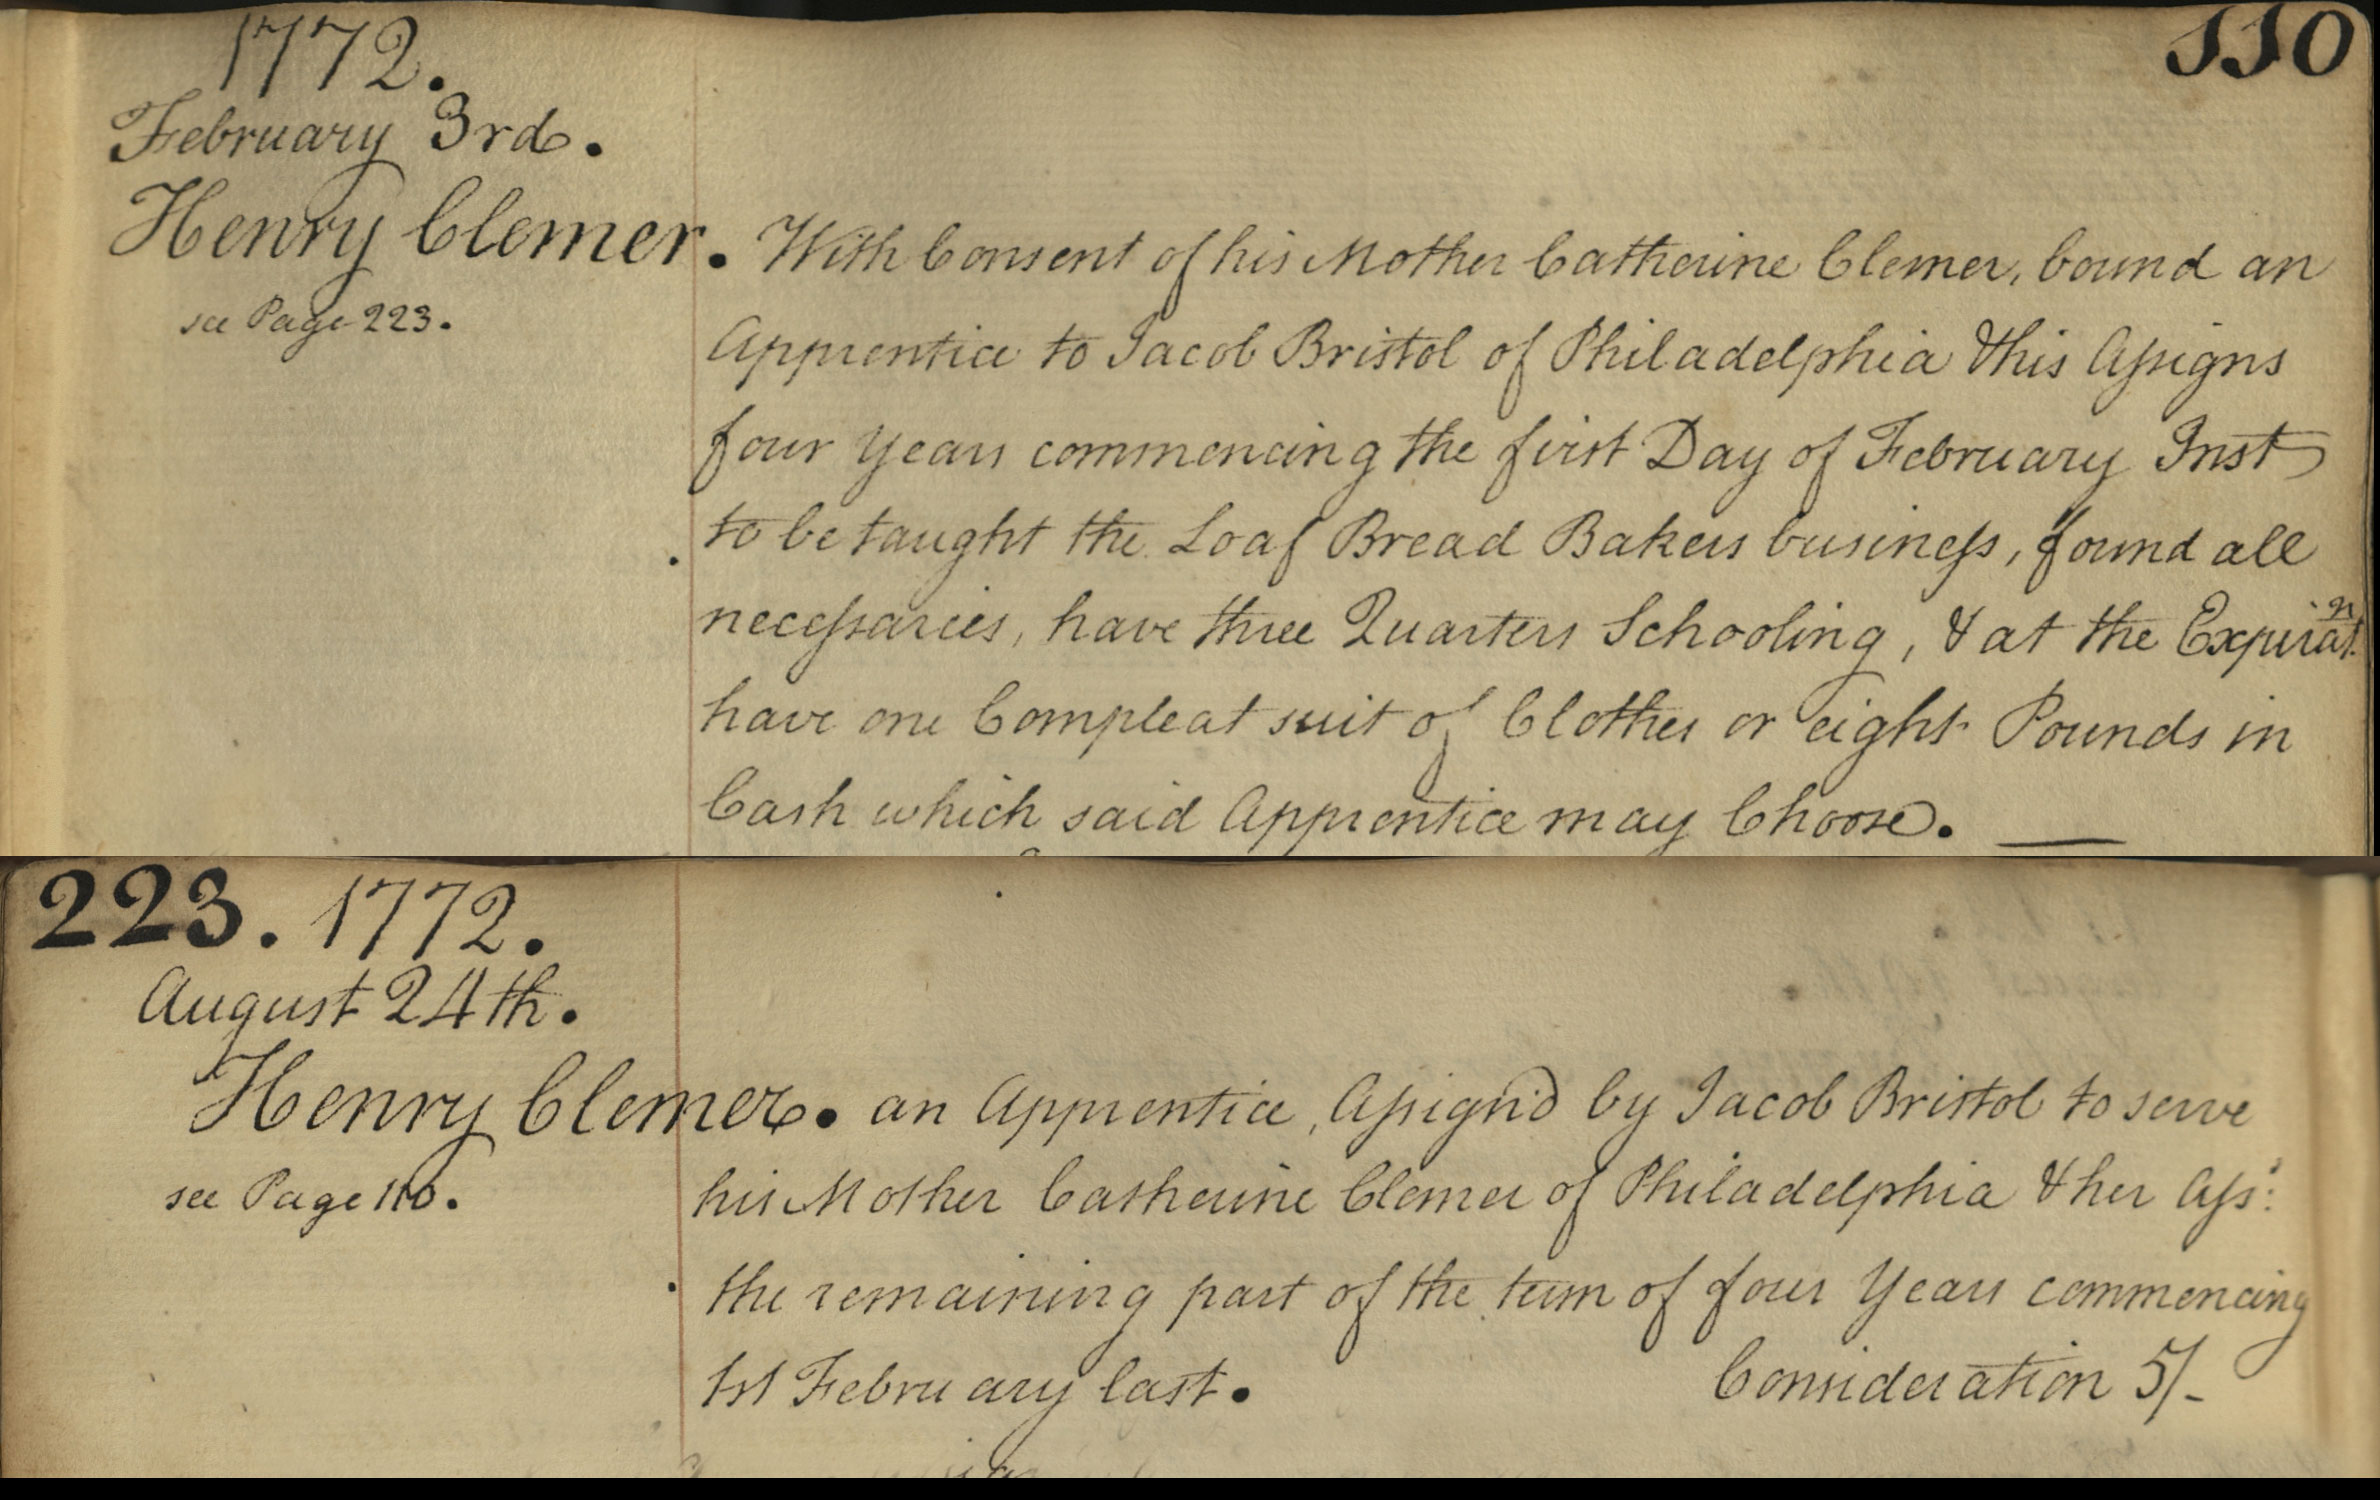 1772.
110
February 3rd.
Henry Clemer. With Consent of his Mother Catherine Clemer, bound an
see Page 223.
Apprentice to Jacob Bristol of Philadelphia & his Assigns
four Years commencing the first Day of February Inst
to be taught the Loaf Bread Bakers business, found all
necessaries, have three Quarters Schooling, & at the Expirat.n
have one Compleat suit of Clothes or eight Pounds in
Cash which said Apprentice may Choose.
223. 1772.
August 24th.
Henry Clemer. an Apprentice, Assign'd by Jacob Bristol to serve
see Page 110.
his Mother Catherine Clemer of Philadelphia & her Ass:s
the remaining part of the term of four Years commencing
1st February last. Consideration 5/-